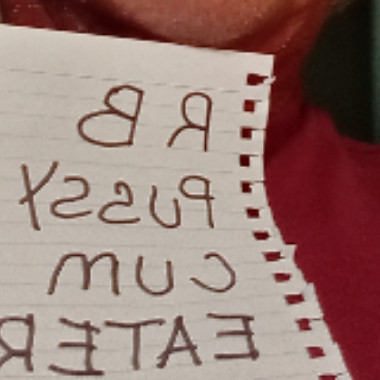 R B
PUSSY
CUM
EATER